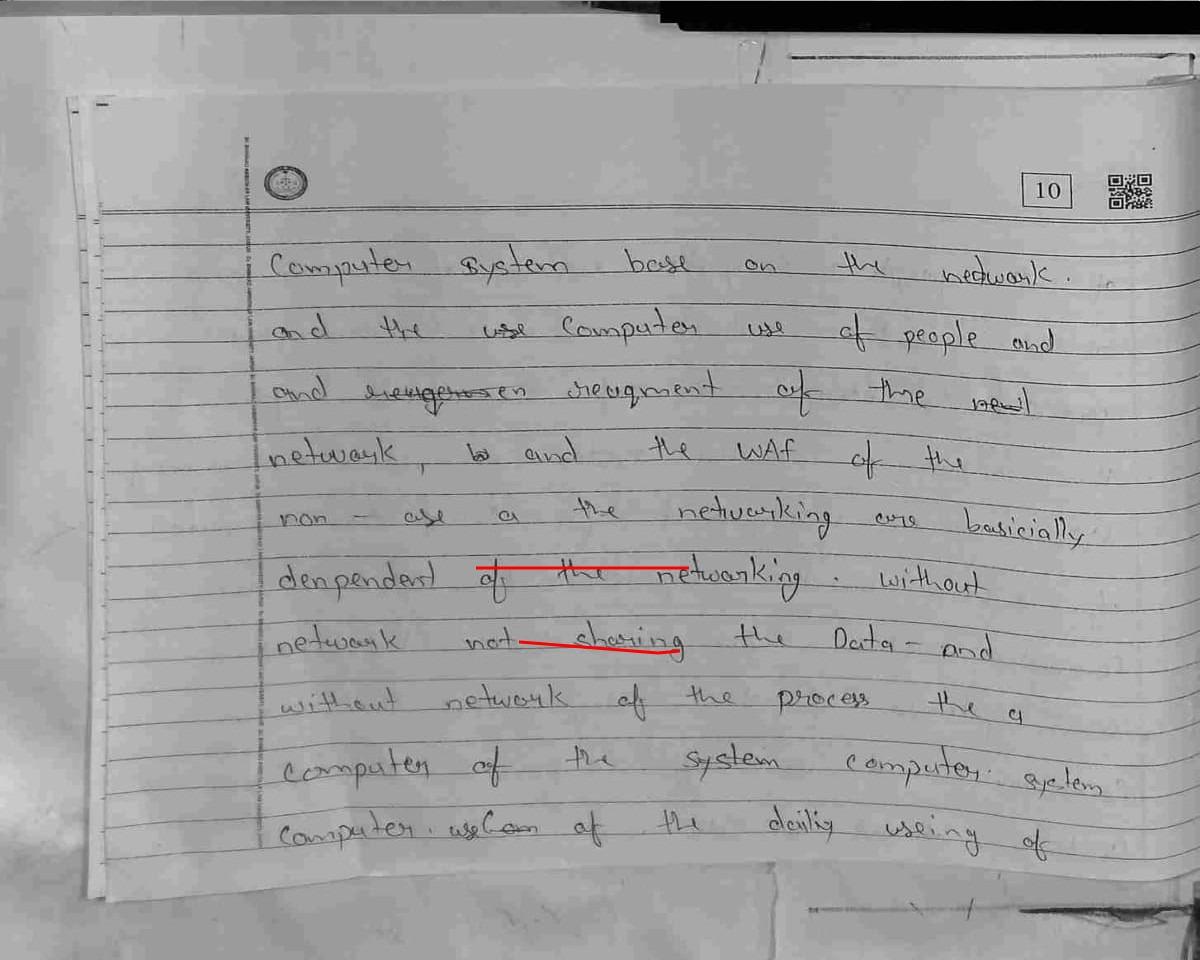 10
Computer system base on the nedwark.
and the use Computer use of people and
and reuqment of the
netwark, and the WAf of the
non - use a the netwarking are basicially
denpendent of the netwarking. without
netwark not sharing the Data - and
without network of the process the a
computer of the system computer. system
computer. of the dailiy useing of